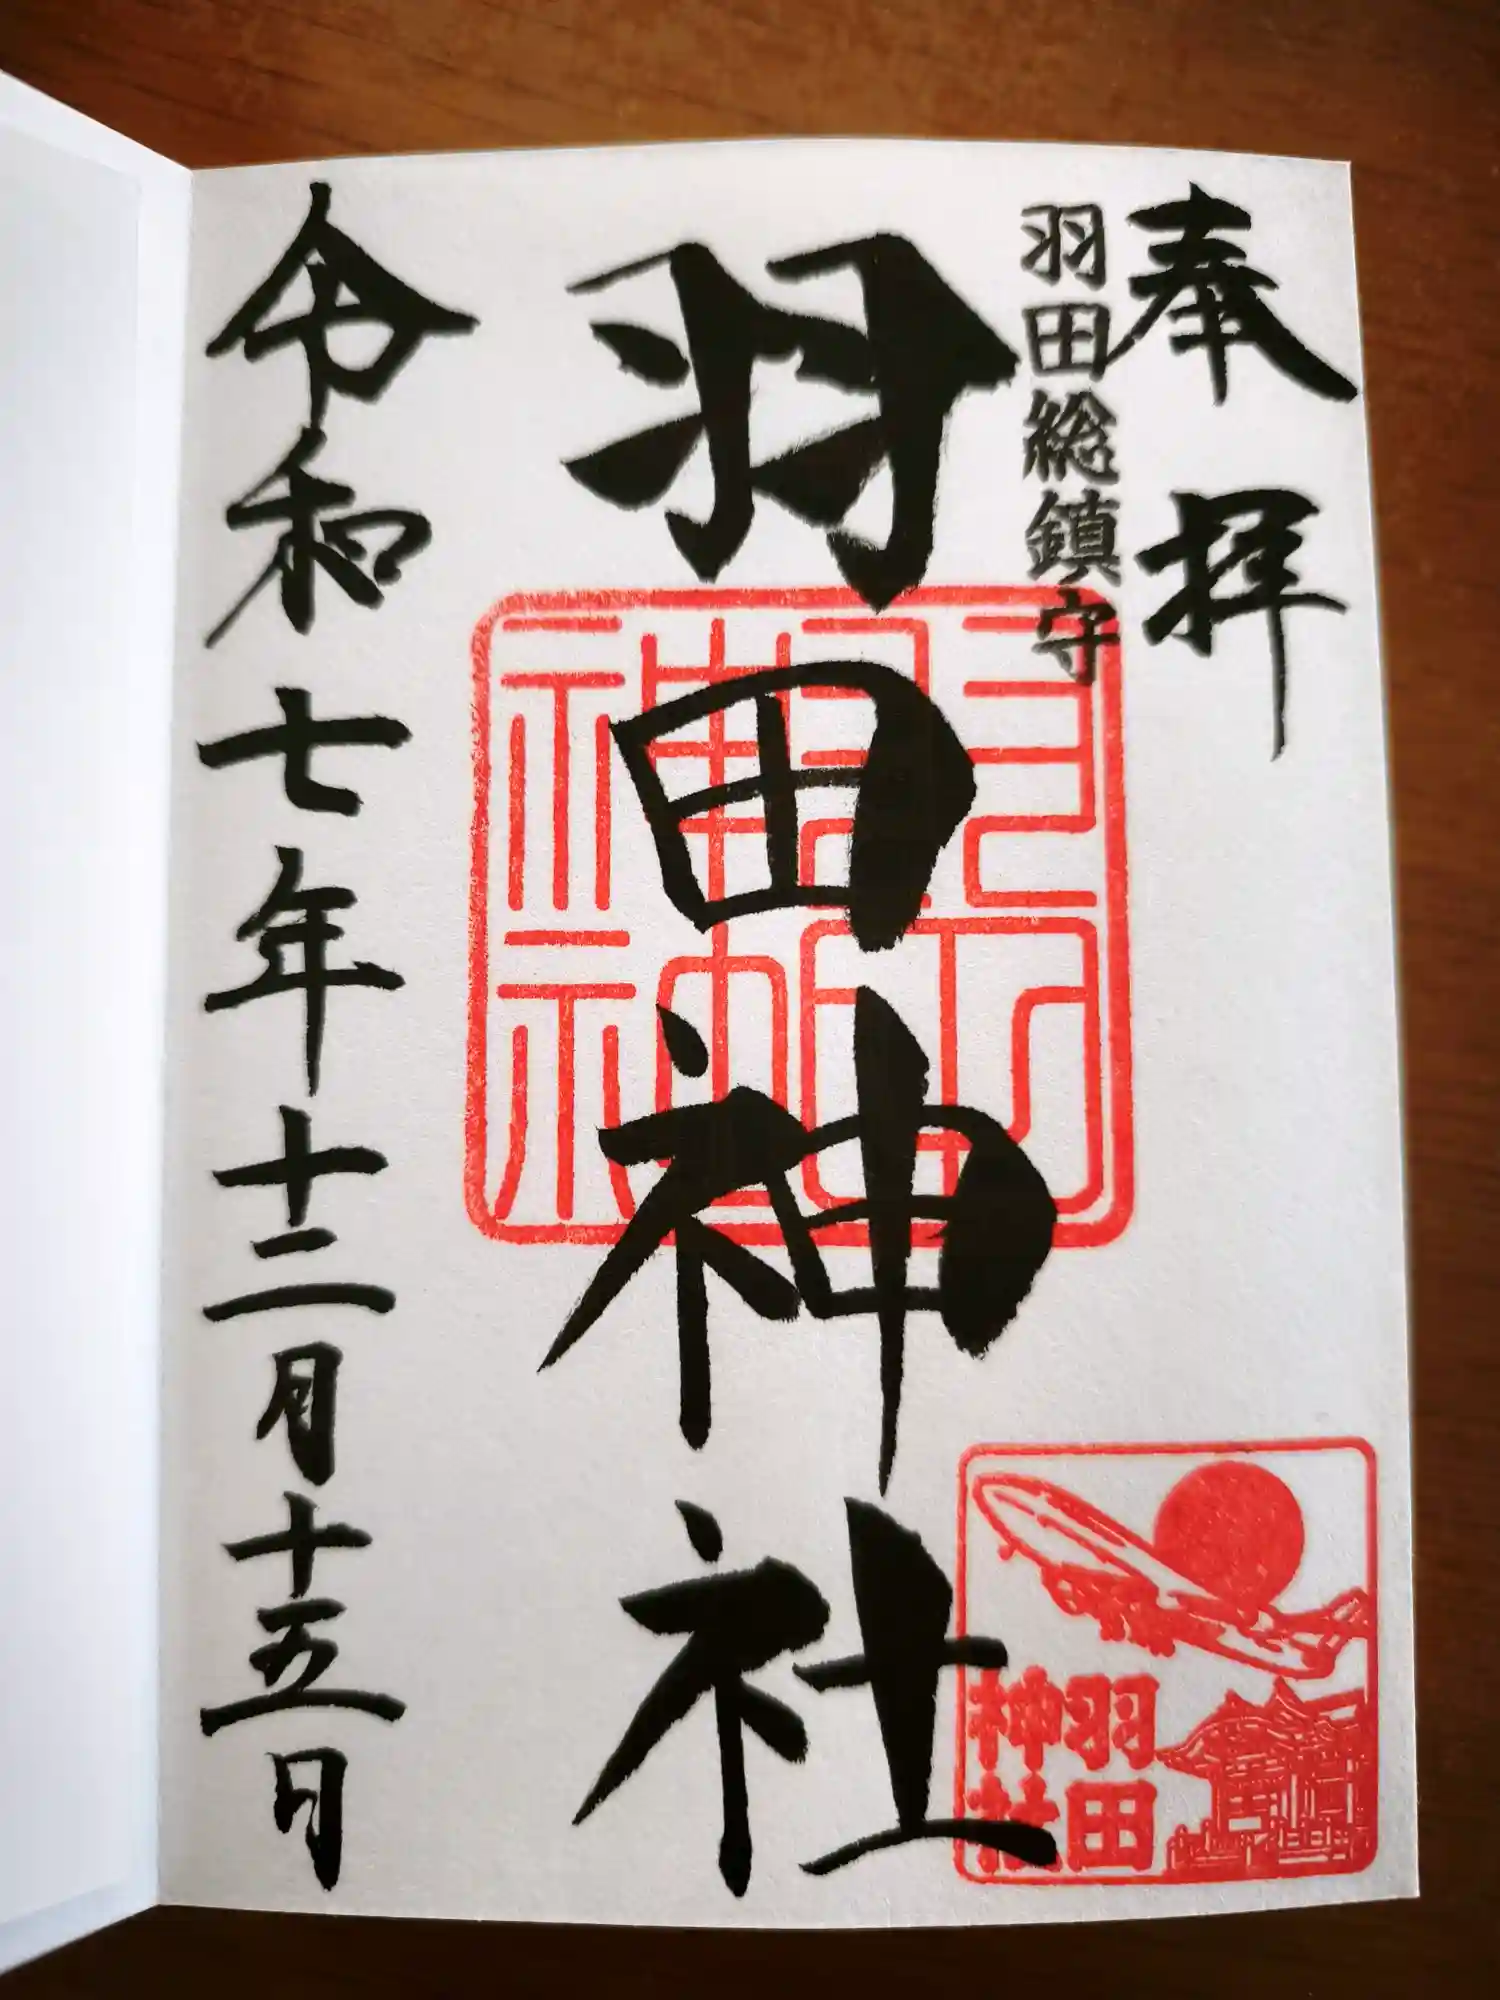 奉拝
羽田総鎮守
羽田神社
羽田
神社
令和七年十二月十五日